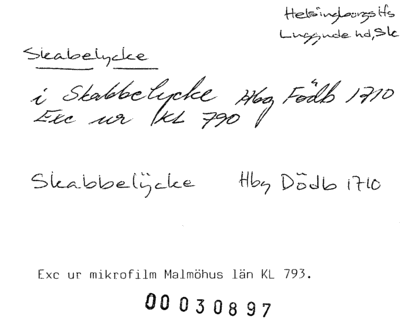 Helsingborgs lfs
Luggude hd, Sk
Skabelycke
i Skabbelycke Hbg Födb 1710
Exc ur KL 790
Skabbelÿcke Hbg Dödb 1710
Exc ur mikrofilm Malmöhus län KL 793.
00030897